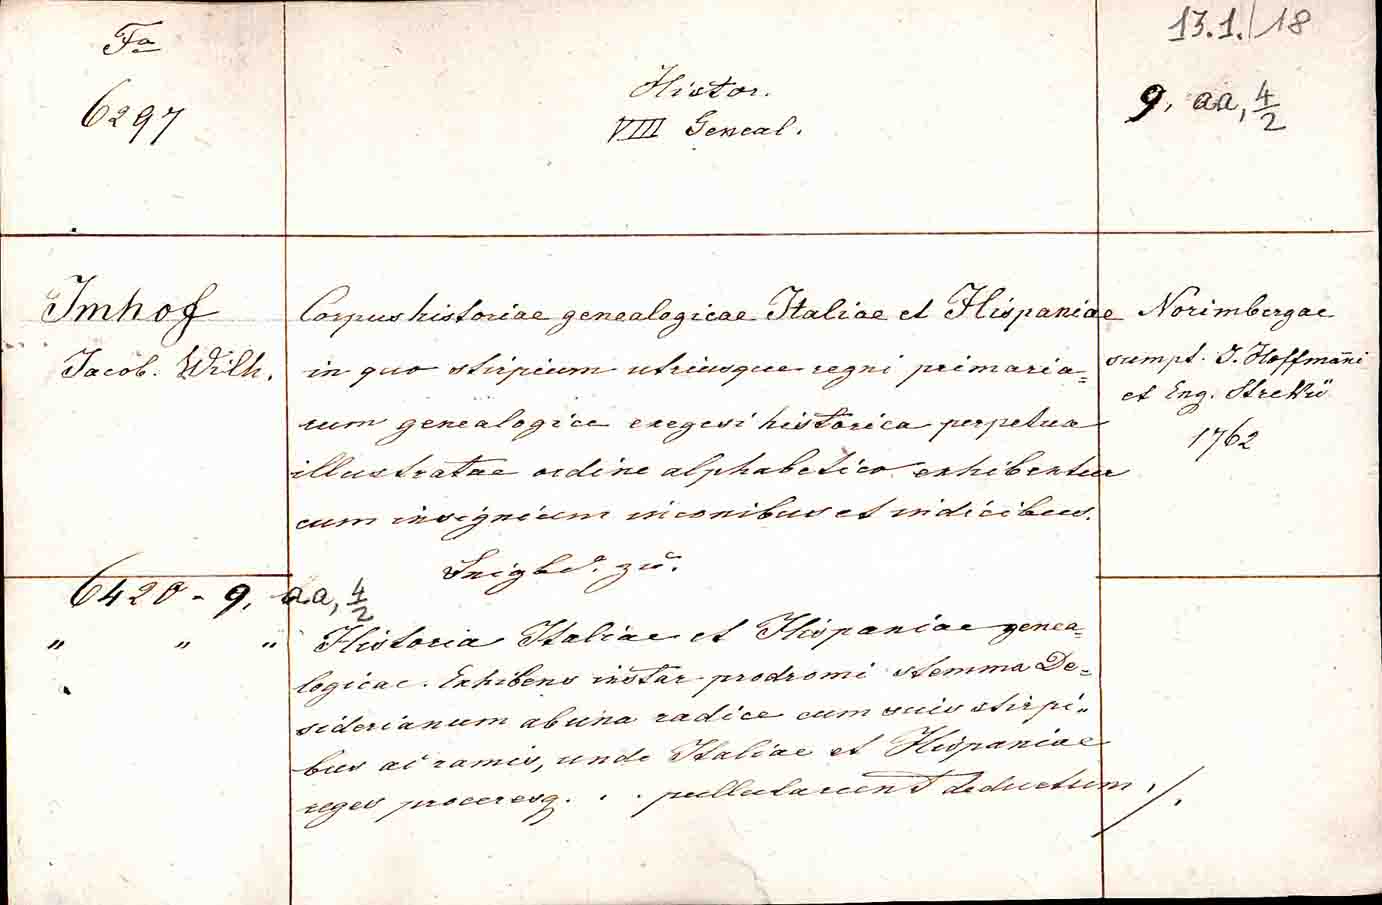 Fa
6297
Histor.
VIII Geneal.
13.1./18
9, aa, 4/2
Imhof
Jacob. Wilh.
Corpus historiae genealogicae Italiae et Hispaniae
in quo stirpium utriusque regni primaria=
rum genealogice exegesi historica perpetua
illustratae ordine alphabetico exhibentur
cum insignium inconibus et indicibus.
Norimbergae
sumpt. J. Hoffmani
et Eng. Streckü
1762
6420 - 9, aa, 4/2
" " " Historia Italiae et Hispaniae genea=
logicae. Exhibens instar prodromi stemma De=
siderianum ab una radice cum suis stirpi"
bus ac ramis, unde Italiae et Hispaniae
reges proceresq. . . pullularunt deductum ./.